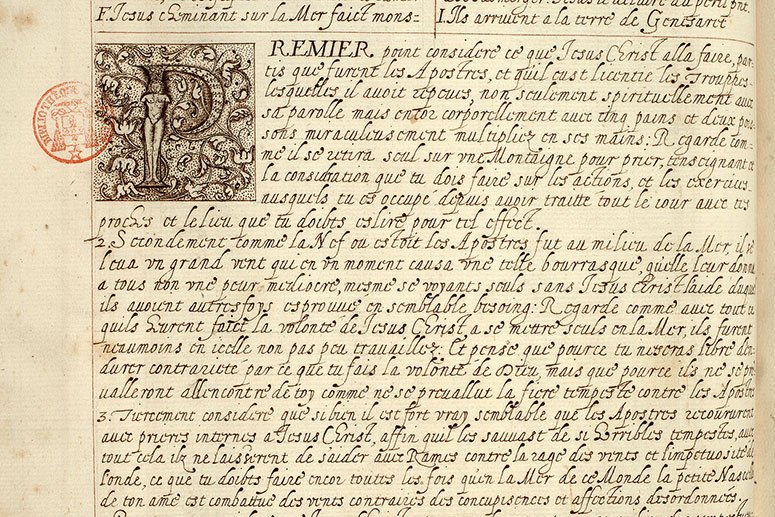 F. Jesus cheminant sur la Mer faict mons-
I. Ils arriuent a la terre de Genesaret
PREMIER point considere ce que Jesus Christ alla faire, par-
tis que furent les Apostres, et qu'il eust licentie les Trouppes
lesquelles il auoit repeues, non seulement spirituellement auec
sa parolle mais encor corporellement auec cinq pains et deux pois-
sons miraculeusement multipliez en ses mains: Regarde com-
me il se retira seul sur vne Montaigne pour prier, t'enseignant
la consideration que tu dois faire sur les actions, et les exercices
ausquels tu es occupé depuis auoir traitte tout le iour auec tes
proches et le lieu que tu doibts eslire pour tel effect.
2. Secondement comme la Nef ou estoit les Apostres fut au milieu de la Mer, il se
leua vn grand vent qui en vn moment causa vne telle bourrasque, qu'elle leur donna
a tous non vne peur mediocre, mesme se voyants seuls sans Jesus Christ l'aide duquel
ils auoient autresfoys esprouue en semblable besoing: Regarde comme auec tout ce
quils eurent faict la volonte de Jesus Christ a se mettre seuls en la Mer, ils furent
neaumoins en icelle non pas peu trauaillez: Et pense que pource tu ne seras libre d'en-
durer contrariete par ce que tu fais la volonte de Dieu, mais que pource ils ne se pre-
ualleront allencontre de toy comme ne se preuallut la fiere tempeste contre les Apostres
3. Tiercement considere que si bien il est fort vray semblable que les Apostres recoururent
auec prieres internes a Jesus Christ, affin quil les sauuast de si horribles tempestes, auec
tout cela ilz ne laisserent de s'aider auec Rames contre la rage des vents et l'impetuosite de
l'onde, ce que tu doibts faire encor toutes les fois qu'en la Mer de ce Monde la petite Nasselle
de ton ame est combattue des vents contraires des concupiscences et affections desordonnees.
BIBLIOTHECA